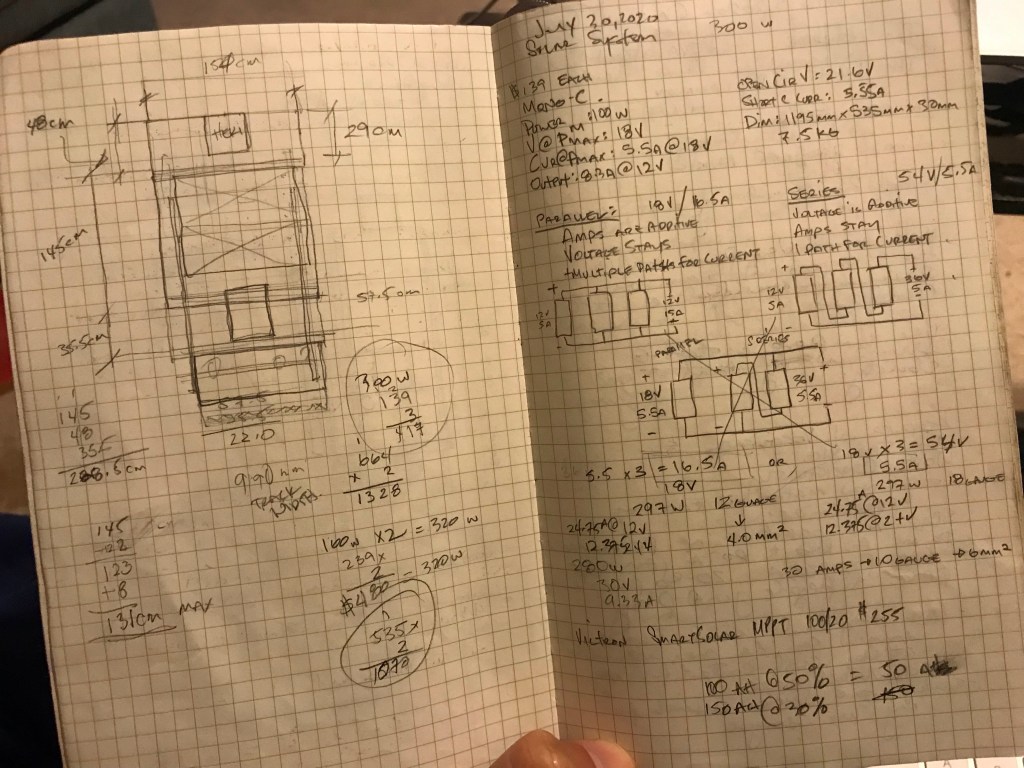 154cm
48cm
HEKI
29cm
145cm
57.5cm
35.5cm
145
48
35.5
228.5cm
22.0
300 W
139
3
417
664
x 2
1328
990mm
145
22
123
+8
131cm MAX
160w x2 = 320 w
239x
2 = 320w
$480
535x
2
1070
July 20, 2020
Solar System
300 w
$139 EACH
Mono-C.
Power M: 100w
V@PMAX: 18V
Cur@PMAX: 5.5A@18V
Output: 8.3A@12V
OPEN CIR V = 21.6V
Short C Curr: 5.55A
Dim: 1195mm x 535mm x 30mm
7.5kg
PARALLEL: 18V/16.5A
AMPS ARE ADDITIVE
VOLTAGE STAYS
+MULTIPLE PATHS FOR CURRENT
SERIES 54V/5.5A
VOLTAGE IS ADDITIVE
AMPS STAY
1 PATH FOR CURRENT
+
12V
5A
-
12V
15A
+
12V
5A
-
36V
5A
PARALLEL
SERIES
+
18V
5.5A
-
+
-
+
36V
5.5A
-
5.5 x 3 = 16.5A
18V
OR
18V x 3 = 54V
5.5A
297 W
297 W
12 GUAGE
↓
4.0mm²
18 GUAGE
24.75A@12V
12.395@24V
24.75A@12V
12.375@24V
280W
30V
9.33A
30 AMPS → 10 GUAGE → 6mm²
Victron SmartSolar MPPT 100/20 $255
100 AH @ 50% = 50 AH
150 AH @ 20%